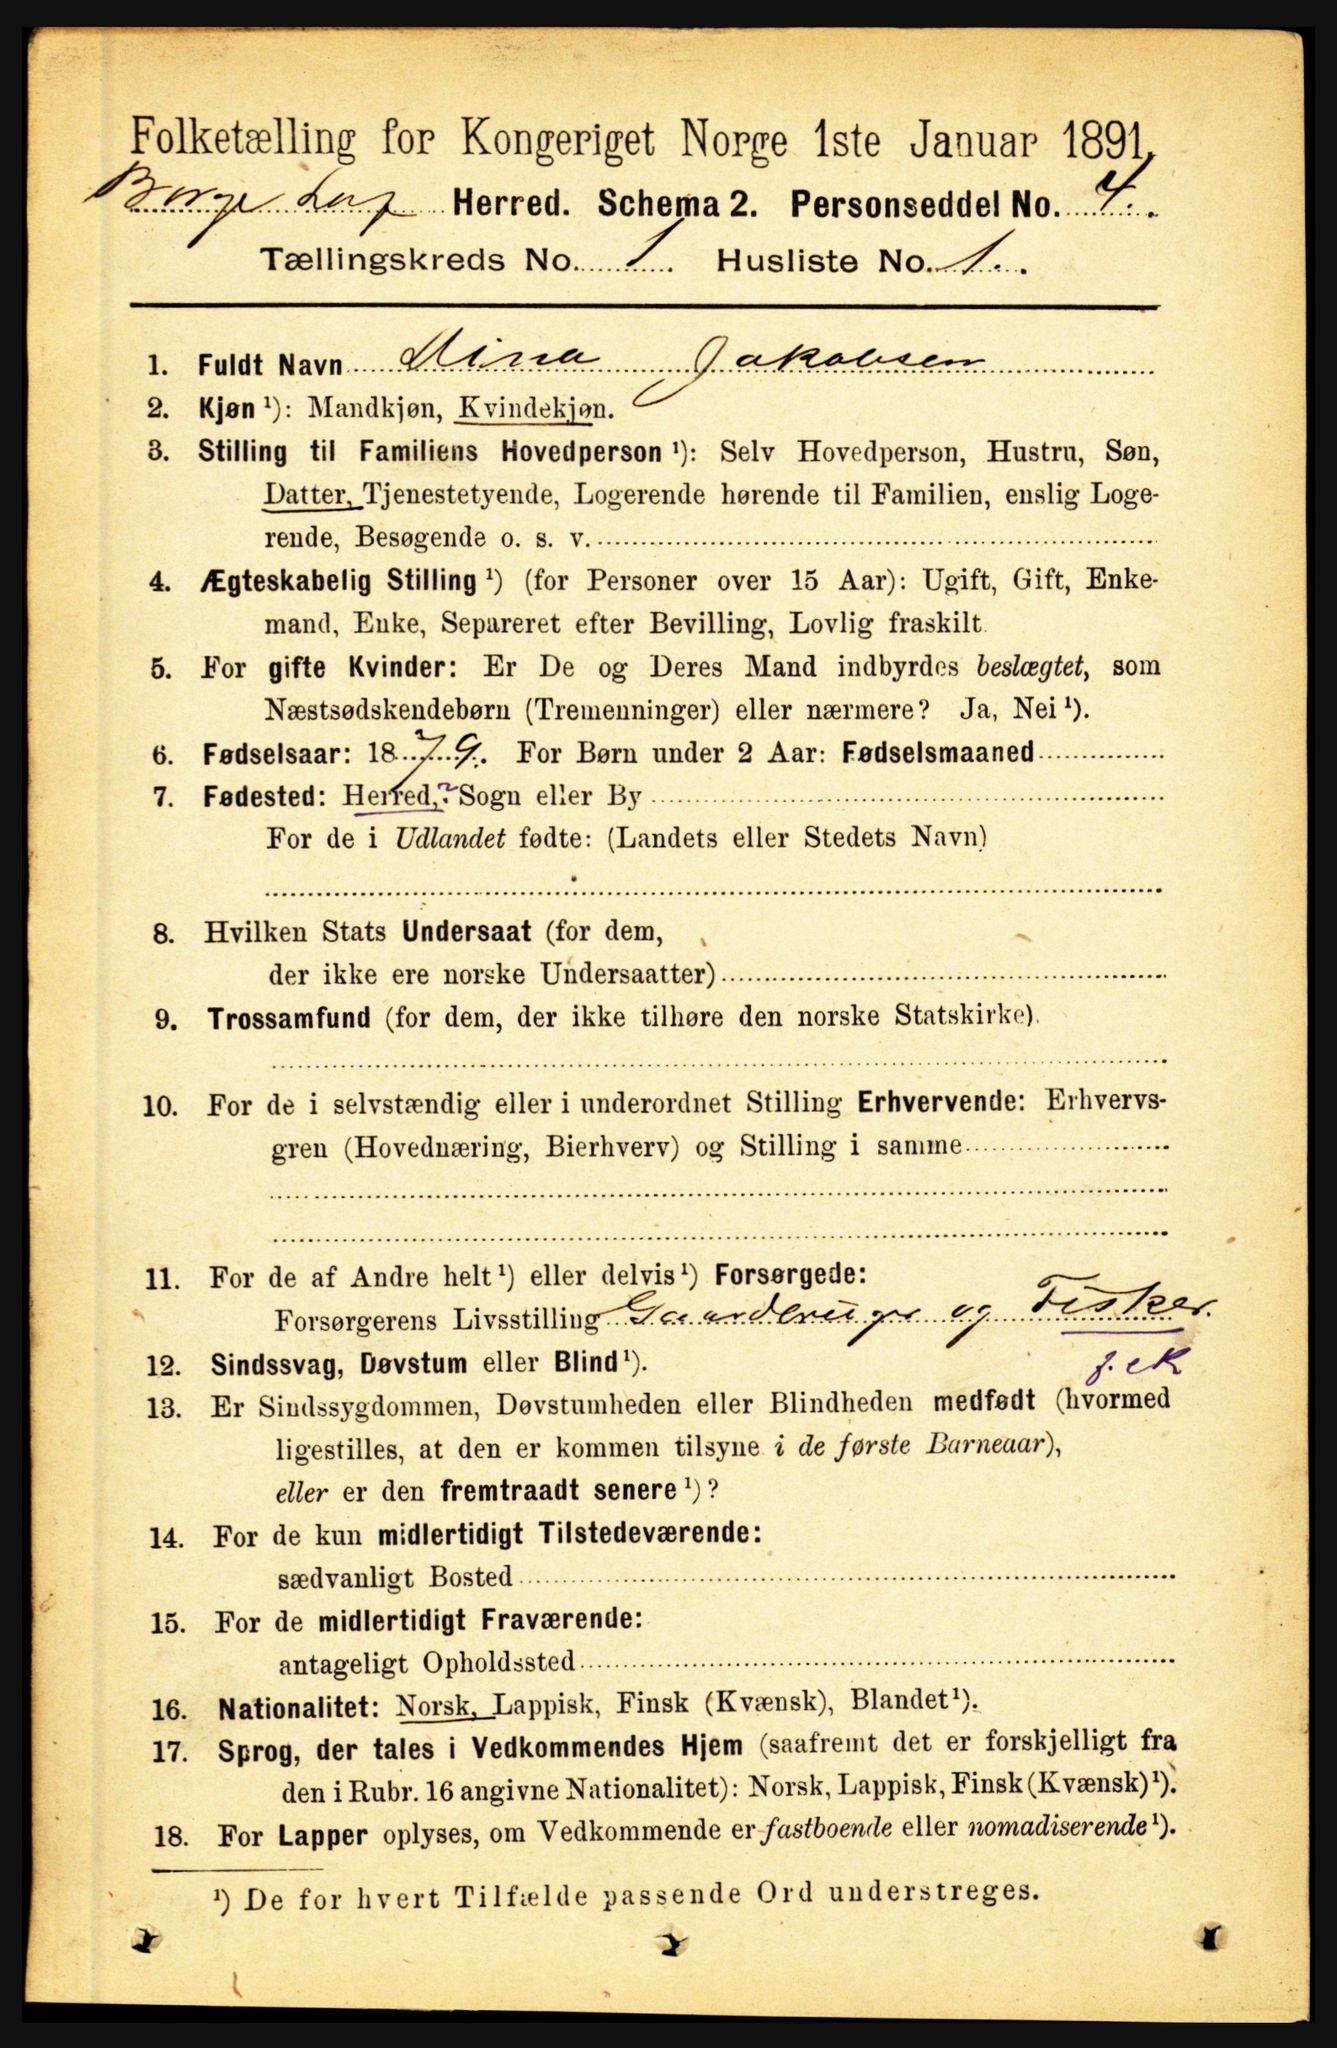 Folketælling for Kongeriget Norge 1ste Januar 1891.
Borge Herred. Schema 2. Personseddel No. 4.
Tællingskreds No. 1 Husliste No. 1.
1. Fuldt Navn Mina Jakobsen
2. Kjøn ¹): Mandkjøn, Kvindekjøn.
3. Stilling til Familiens Hovedperson ¹): Selv Hovedperson, Hustru, Søn,
Datter, Tjenestetyende, Logerende hørende til Familien, enslig Loge-
rende, Besøgende o. s. v.
4. Ægteskabelig Stilling ¹) (for Personer over 15 Aar): Ugift, Gift, Enke-
mand, Enke, Separeret efter Bevilling, Lovlig fraskilt
5. For gifte Kvinder: Er De og Deres Mand indbyrdes beslægtet, som
Næstsødskendebørn (Tremenninger) eller nærmere? Ja, Nei ¹).
6. Fødselsaar: 1879. For Børn under 2 Aar: Fødselsmaaned
7. Fødested: Herred, Sogn eller By
For de i Udlandet fødte: (Landets eller Stedets Navn)
8. Hvilken Stats Undersaat (for dem,
der ikke ere norske Undersaatter)
9. Trossamfund (for dem, der ikke tilhøre den norske Statskirke).
10. For de i selvstændig eller i underordnet Stilling Erhvervende: Erhvervs-
gren (Hovednæring, Bierhverv) og Stilling i samme
11. For de af Andre helt ¹) eller delvis ¹) Forsørgede:
Forsørgerens Livsstilling Gaardbruger og Fisker.
12. Sindssvag, Døvstum eller Blind ¹).
13. Er Sindssygdommen, Døvstumheden eller Blindheden medfødt (hvormed
ligestilles, at den er kommen tilsyne i de første Barneaar),
eller er den fremtraadt senere ¹)?
14. For de kun midlertidigt Tilstedeværende:
sædvanligt Bosted
15. For de midlertidigt Fraværende:
antageligt Opholdssted
16. Nationalitet: Norsk, Lappisk, Finsk (Kvænsk), Blandet ¹).
17. Sprog, der tales i Vedkommendes Hjem (saafremt det er forskjelligt fra
den i Rubr. 16 angivne Nationalitet): Norsk, Lappisk, Finsk (Kvænsk) ¹).
18. For Lapper oplyses, om Vedkommende er fastboende eller nomadiserende ¹).
¹) De for hvert Tilfælde passende Ord understreges.